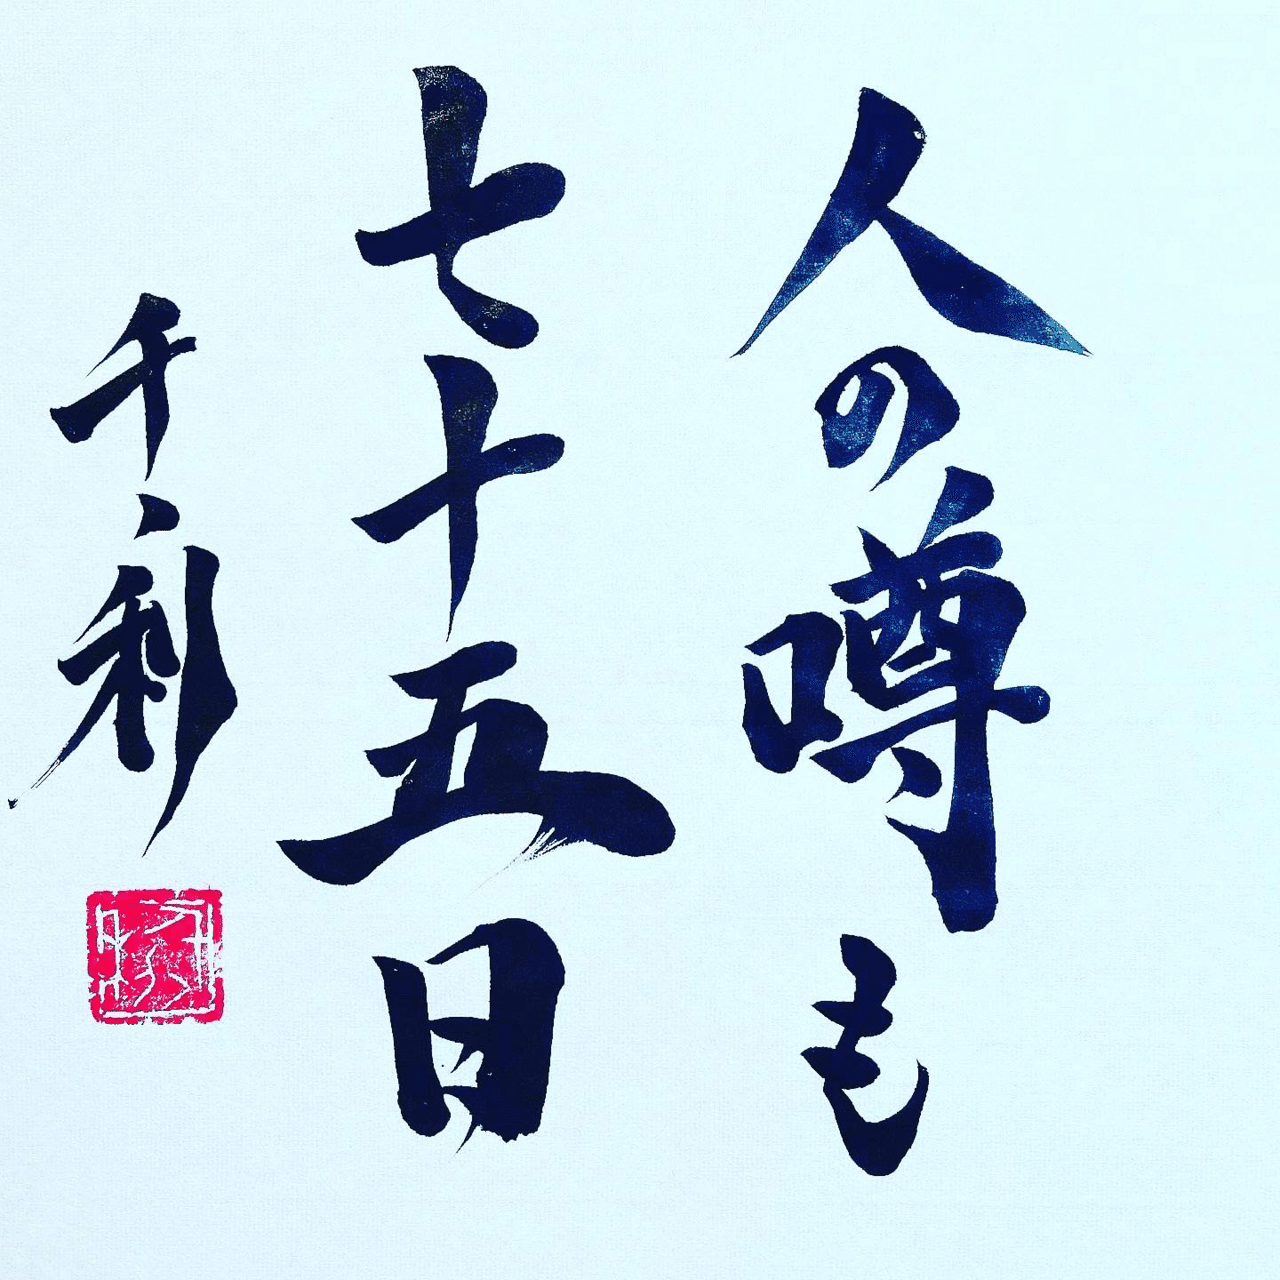 人の噂も
七十五日
千利